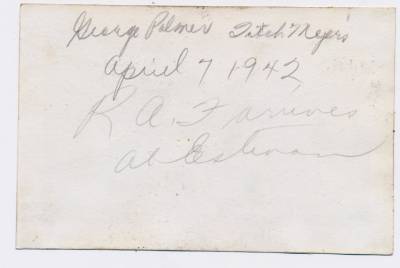 George Palmer Titch Meyers
April 7 1942
R.A.F arrives
at Estevan